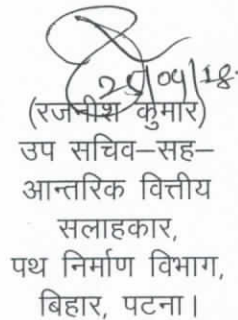 25/04/18
(रजनीश कुमार)
उप सचिव–सह–
आन्तरिक वित्तीय
सलाहकार,
पथ निर्माण विभाग,
बिहार, पटना।